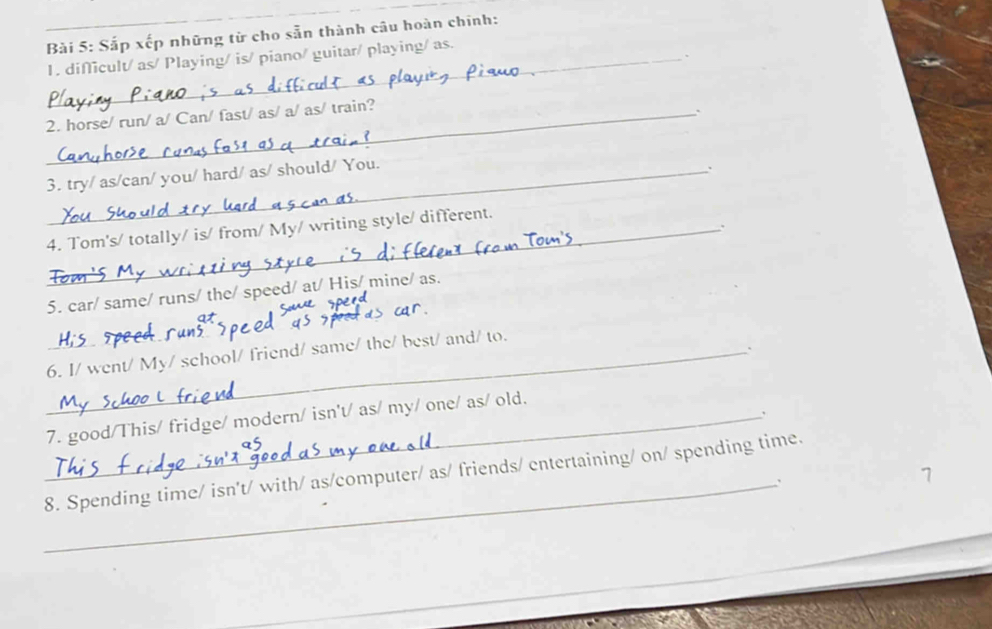 Bài 5: Sắp xếp những từ cho sẵn thành câu hoàn chỉnh:
1. difficult/ as/ Playing/ is/ piano/ guitar/ playing/ as.
Playing Piano is as difficult as playing Piano.
2. horse/ run/ a/ Can/ fast/ as/ a/ as/ train?
Can a horse runs as fast as a train?
3. try/ as/can/ you/ hard/ as/ should/ You.
You should try hard as can as.
4. Tom's/ totally/ is/ from/ My/ writing style/ different.
Tom's My writting style is different from Tom's.
5. car/ same/ runs/ the/ speed/ at/ His/ mine/ as.
same speed
His speed runs at speed as speed as car.
6. I/ went/ My/ school/ friend/ same/ the/ best/ and/ to.
My school friend
7. good/This/ fridge/ modern/ isn't/ as/ my/ one/ as/ old.
This fridge isn't as good as my one old.
8. Spending time/ isn't/ with/ as/computer/ as/ friends/ entertaining/ on/ spending time.
7